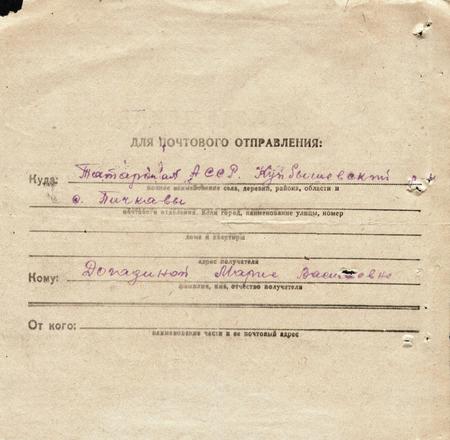 ДЛЯ ПОЧТОВОГО ОТПРАВЛЕНИЯ:
Куда: Татарская АССР. Куйбышевский р-н
полное наименование села, деревни, района, области и
с. Пичкасы
почтового отделения. Если город, наименование улицы, номер
дома и квартиры
адрес получателя
Кому: Догадиной Марие Васильовне
фамилия, имя, отчество получателя
От кого:
наименование части и ее почтовый адрес